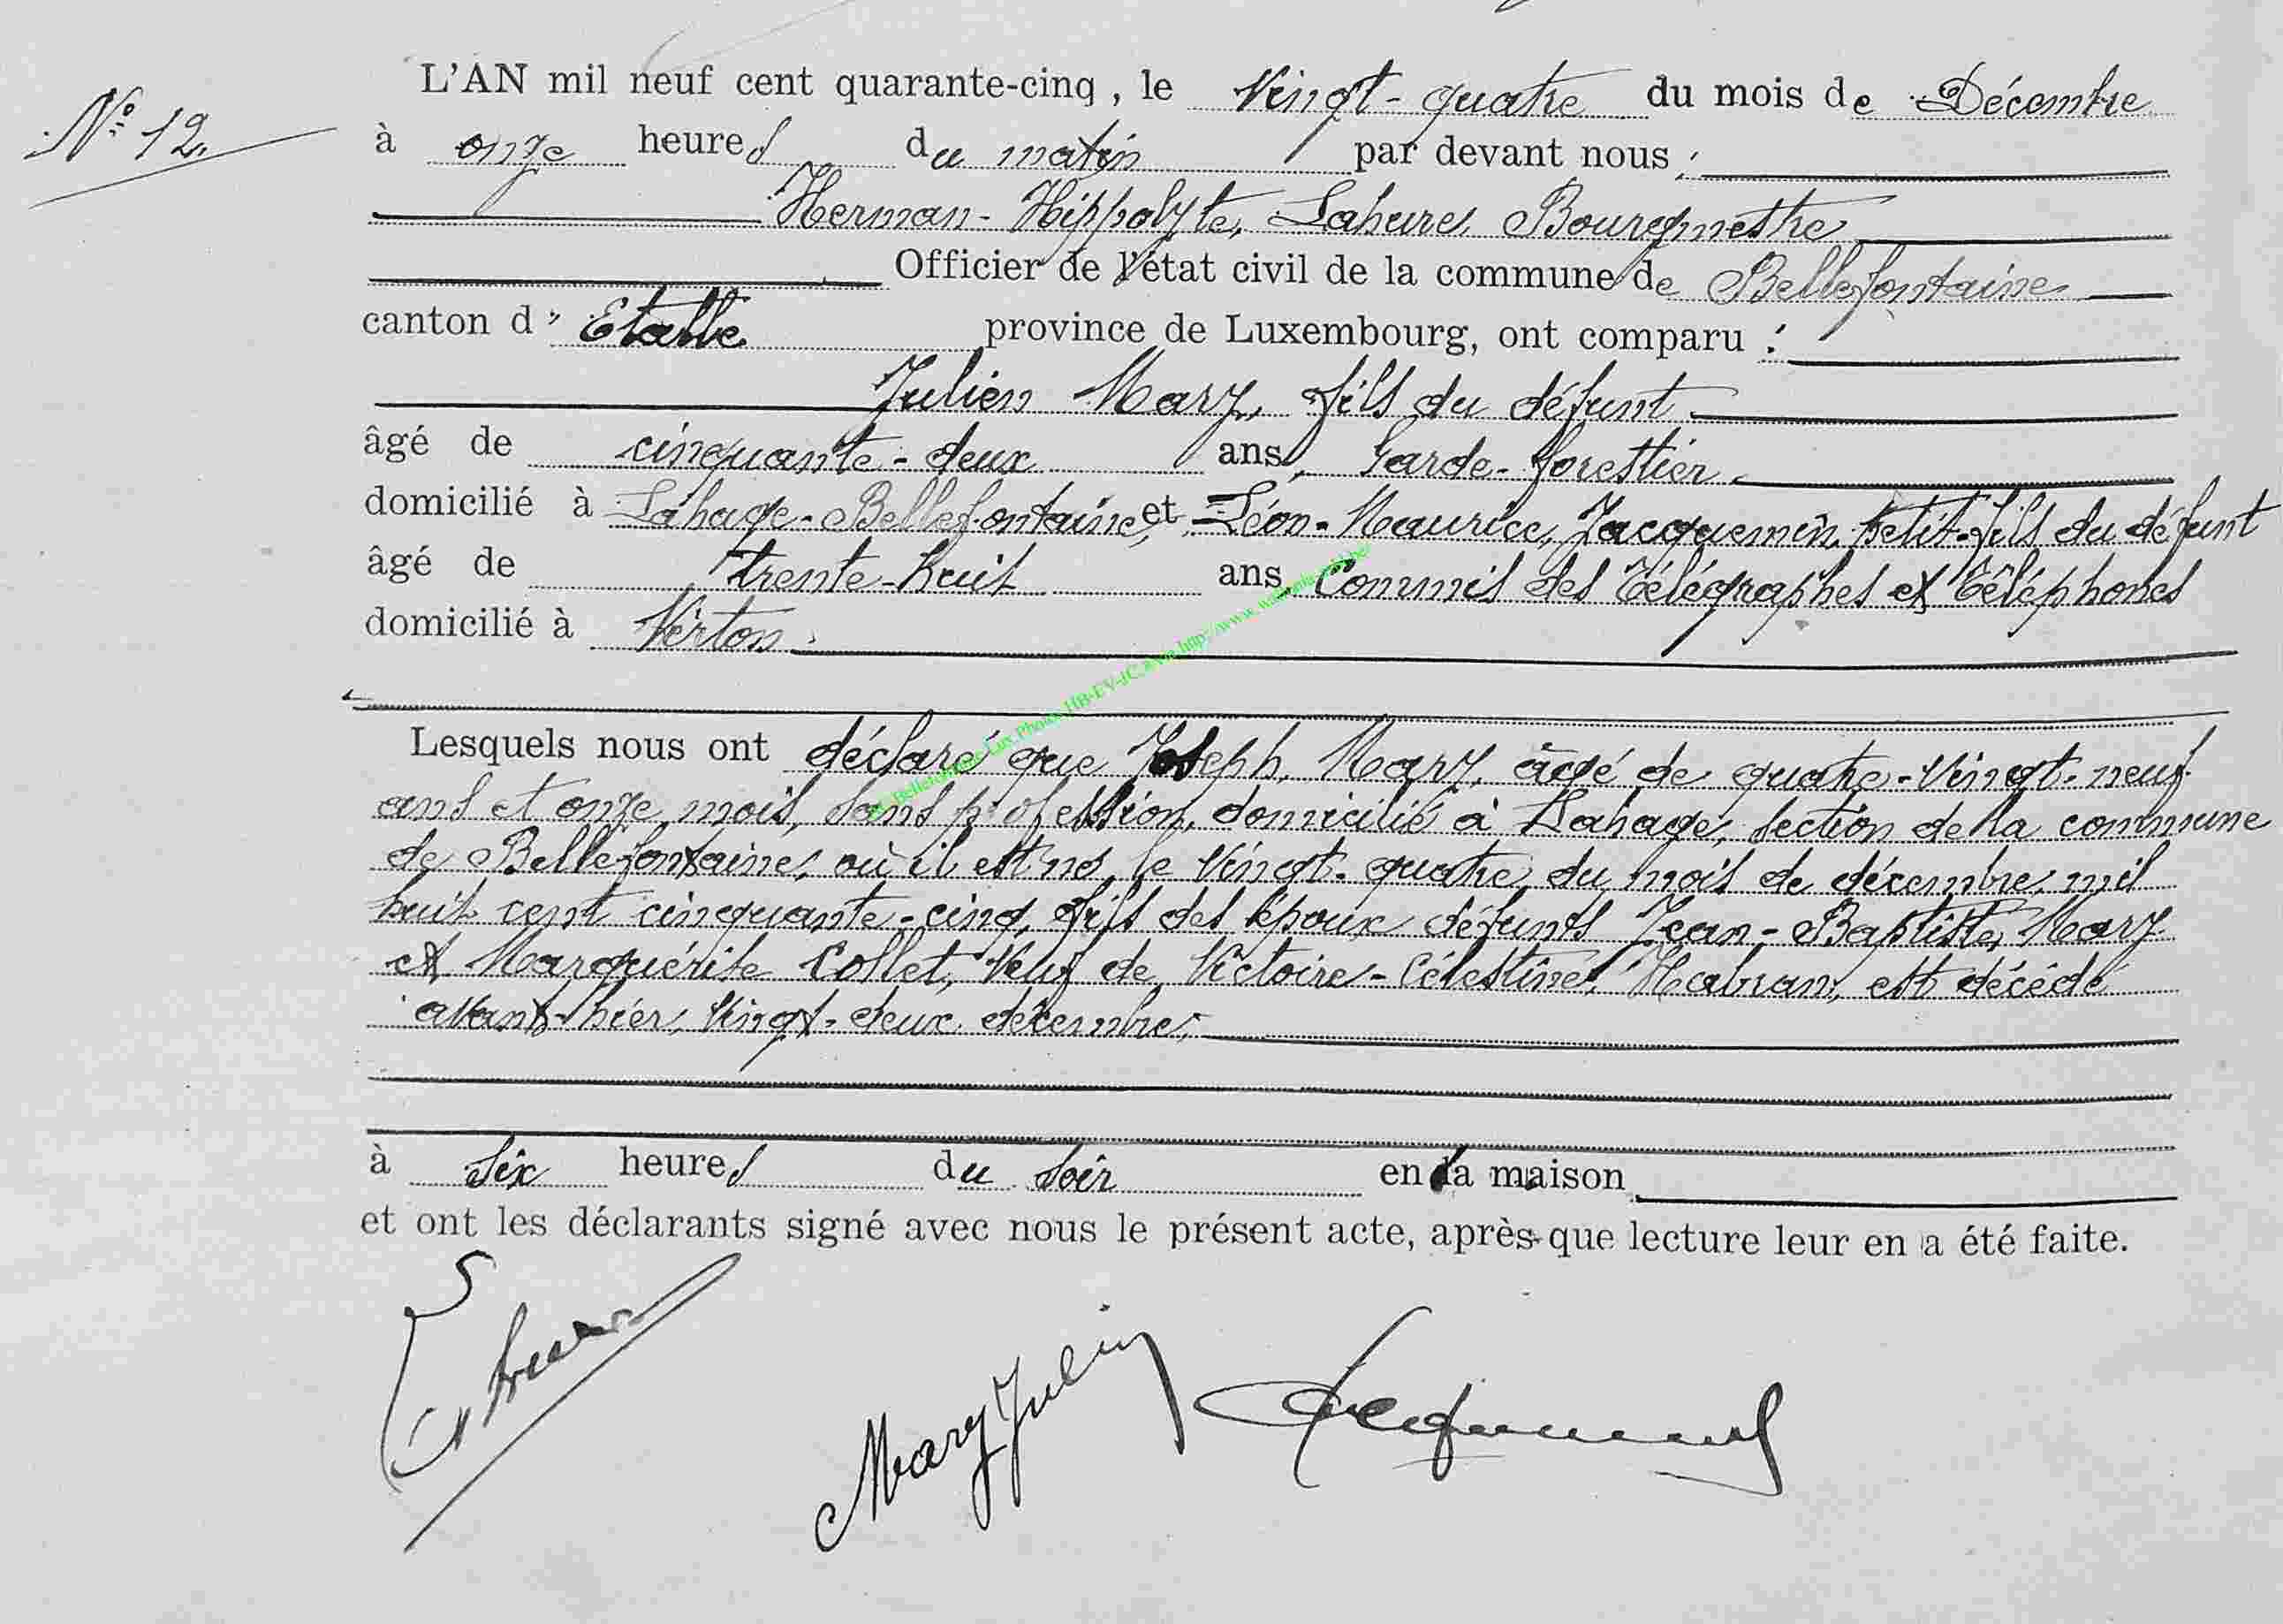 L'AN mil neuf cent quarante-cinq, le Vingt-quatre du mois de Décembre
N° 12.
à onze heures du matin par devant nous,
Herman-Hippolyte, Lahure, Bourgmestre
Officier de l'état civil de la commune de Bellefontaine
canton d' Etalle province de Luxembourg, ont comparu :
Julien Mary, fils du défunt
âgé de cinquante-deux ans, Garde-forestier
domicilié à Lahage-Bellefontaine, et Léon-Maurice, Jacquemin, Petit-fils du défunt
âgé de trente-huit ans, Commis des Télégraphes et Téléphones
domicilié à Virton.
Lesquels nous ont déclaré que Joseph, Mary, âgé de quatre-vingt-neuf
ans et onze mois, sans profession, domicilié à Lahage, section de la commune
de Bellefontaine, où il est né, le vingt-quatre du mois de décembre, mil
huit cent cinquante-cinq, fils des époux défunts Jean-Baptiste, Mary
et Marguérite Collet, Veuf de Victoire-Célestine, Habran, est décédé
avant-hier, vingt-deux décembre,
à six heures du soir en la maison
et ont les déclarants signé avec nous le présent acte, après que lecture leur en a été faite.
Mary Julien Jacquemin